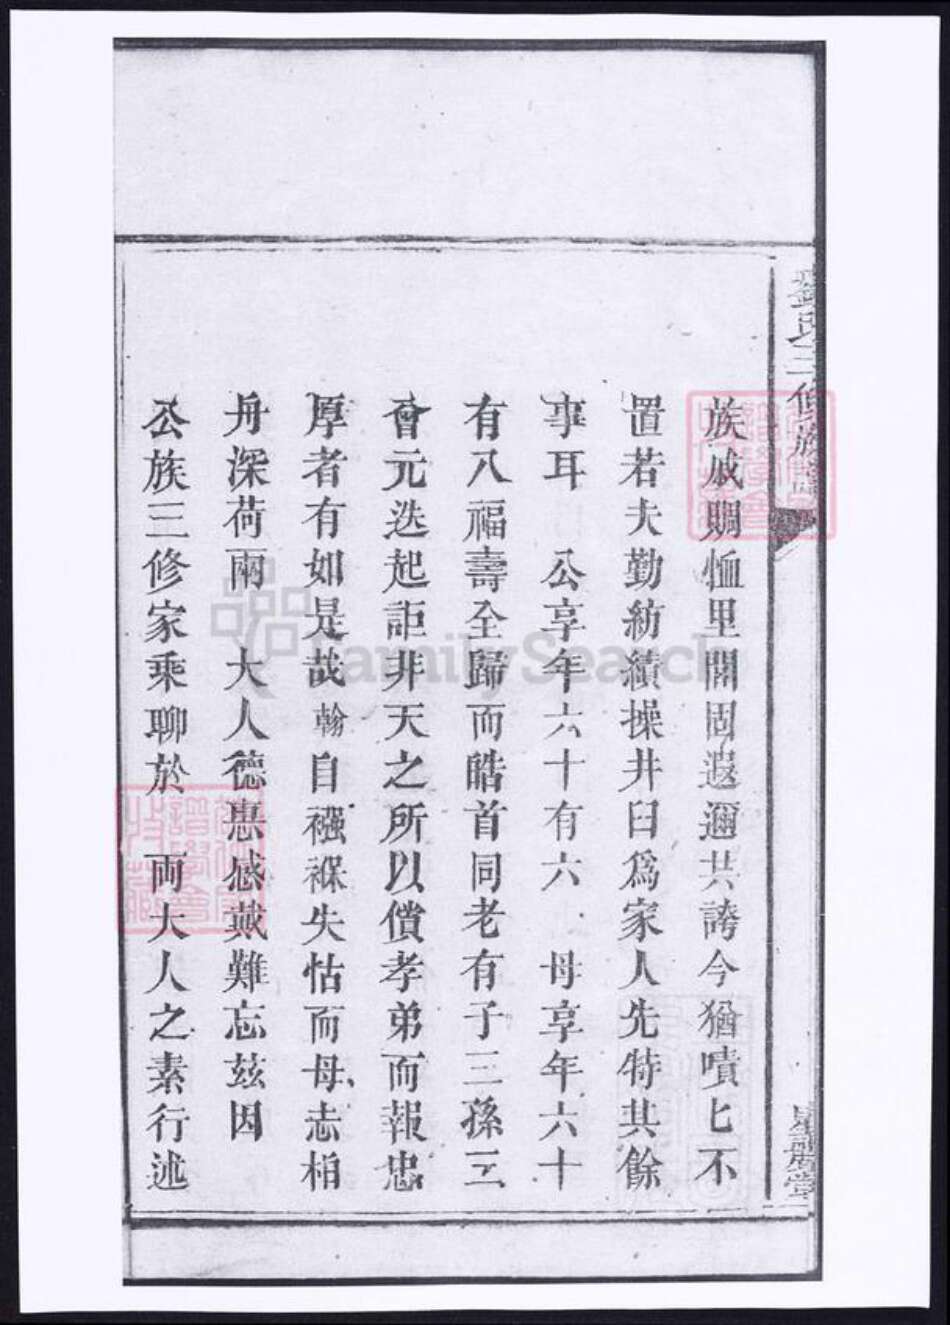 劉氏三修族譜
族戚賙恤里閈固遐邇共誇今猶嘖匕不
置若夫勤紡績操井臼為家人先特其餘
事耳 公享年六十有六 母享年六十
有八福壽全歸而皓首同老有子三孫三
會元迭起詎非天之所以償孝弟而報忠
厚者有如是哉翰自襁褓失怙而母志栢
舟深荷兩 大人德惠感戴難忘茲因
公族三修家乘聊於 両大人之素行述
FamilySearch